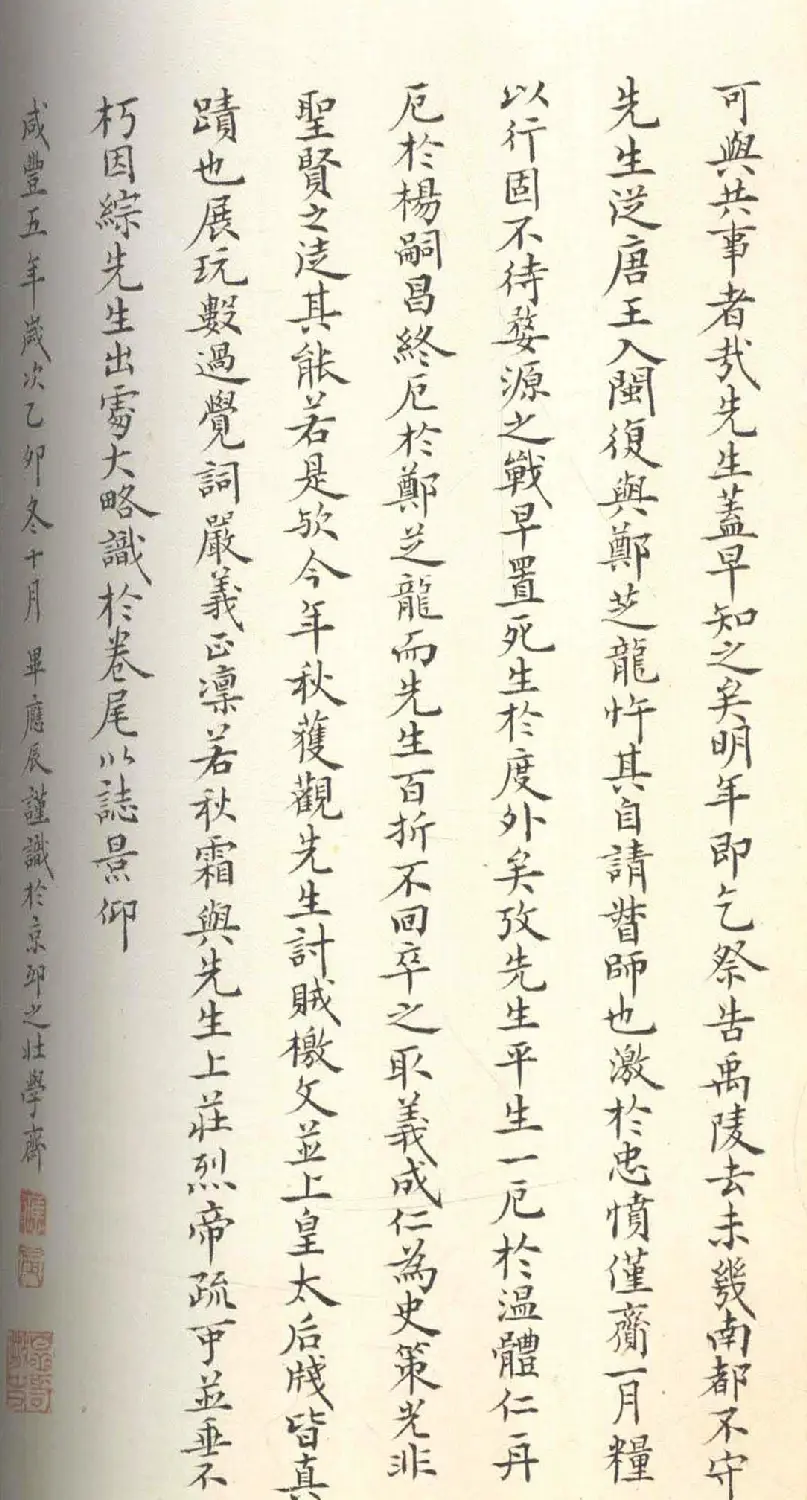 可與共事者哉先生蓋早知之矣明年即乞祭告禹陵去未幾南都不守
先生從唐王入閩復與鄭芝龍忤其自請督師也激於忠憤僅齎一月糧
以行固不待婺源之戰早置死生於度外矣攷先生平生一厄於温體仁再
厄於楊嗣昌終厄於鄭芝龍而先生百折不回卒之取義成仁為史策光非
聖賢之徒其能若是歟今年秋獲觀先生討賊檄文並上皇太后牋皆真
蹟也展玩數過覺詞嚴義正凛若秋霜與先生上莊烈帝疏可並垂不
朽因綜先生出處大略識於卷尾以誌景仰
咸豐五年歲次乙卯冬十月畢應辰謹識於京邸之壯學齋